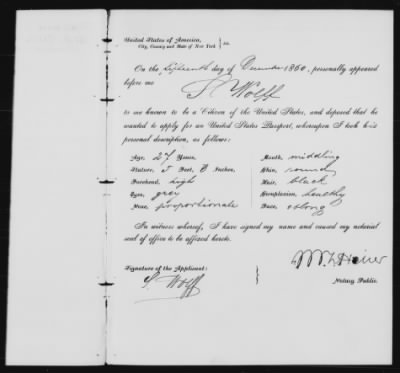 United States of America,
City, County and State of New York } ss.
On the sixteenth day of December 1860, personally appeared
before me
S Wolff
to me known to be a Citizen of the United States, and deposed that he
wanted to apply for an United States Passport, whereupon I took his
personal description, as follows:
Age, 27 Years, Mouth, middling
Stature, 5 Feet, 8 Inches, Chin, round
Forehead, high Hair, black
Eyes, grey Complexion, healthy
Nose, proportionate Face, oblong
In witness whereof, I have signed my name and caused my notarial
seal of office to be affixed hereto.
Signature of the Applicant:
S. Wolff
Notary Public.